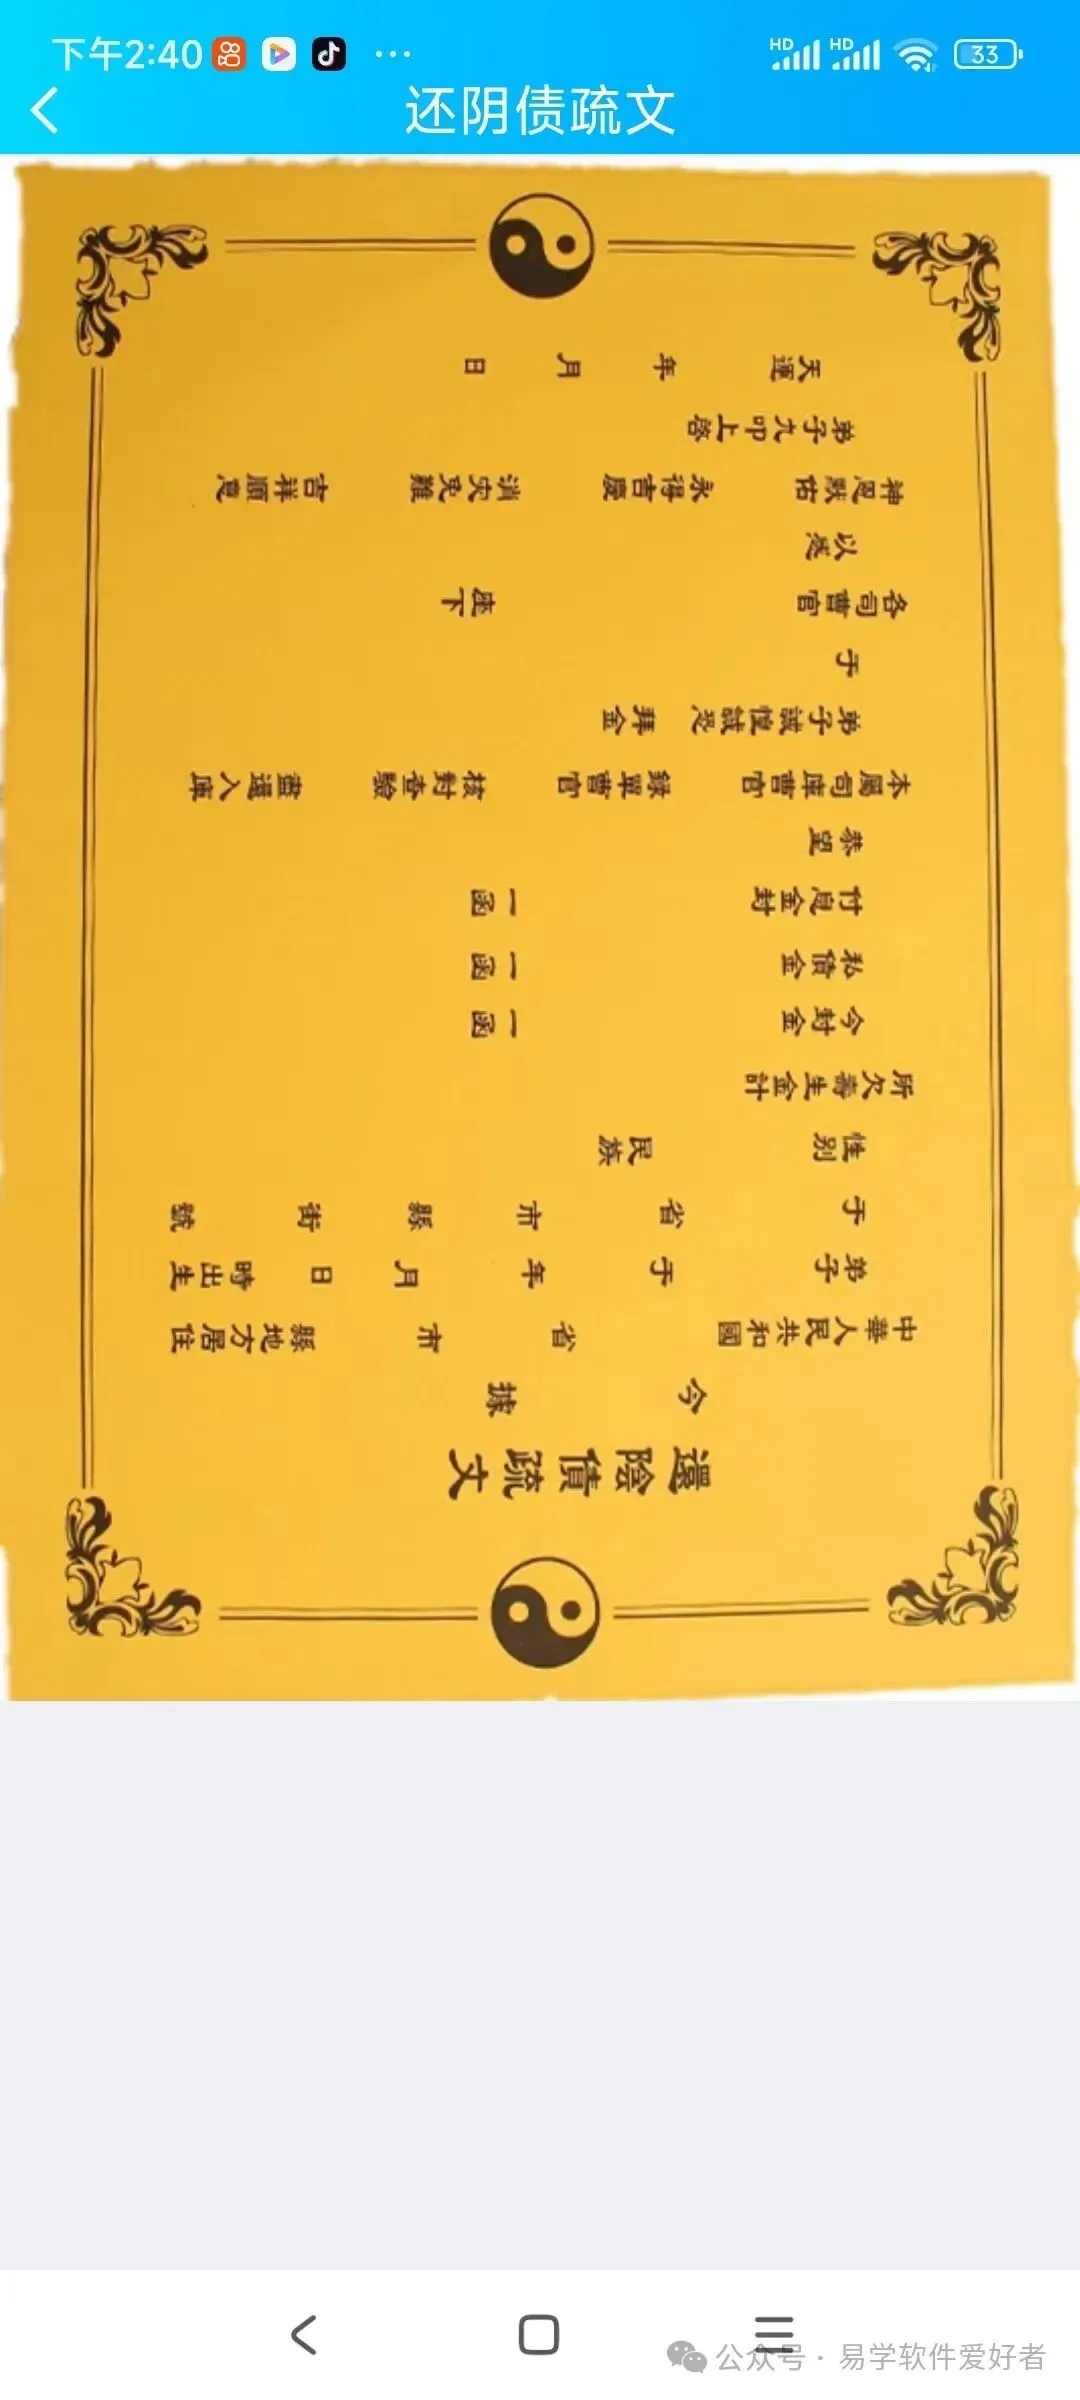 下午2:40
HD HD 33
还阴债疏文
還陰債疏文
今 據
中華人民共和國 省 市 縣地方居住
弟子 于 年 月 日 時出生
于 省 市 縣 街 號
性别 民族
所欠壽生金計
今封金 一函
私債金 一函
付息金封 一函
恭望
本屬司庫曹官 錄單曹官 核對查驗 盡還入庫
弟子誠惶誠恐 拜金
于
各司曹官 座下
以恳
神恩默佑 永得吉慶 消灾免難 吉祥順意
弟子九叩上啓
天運 年 月 日
公众号 · 易学软件爱好者